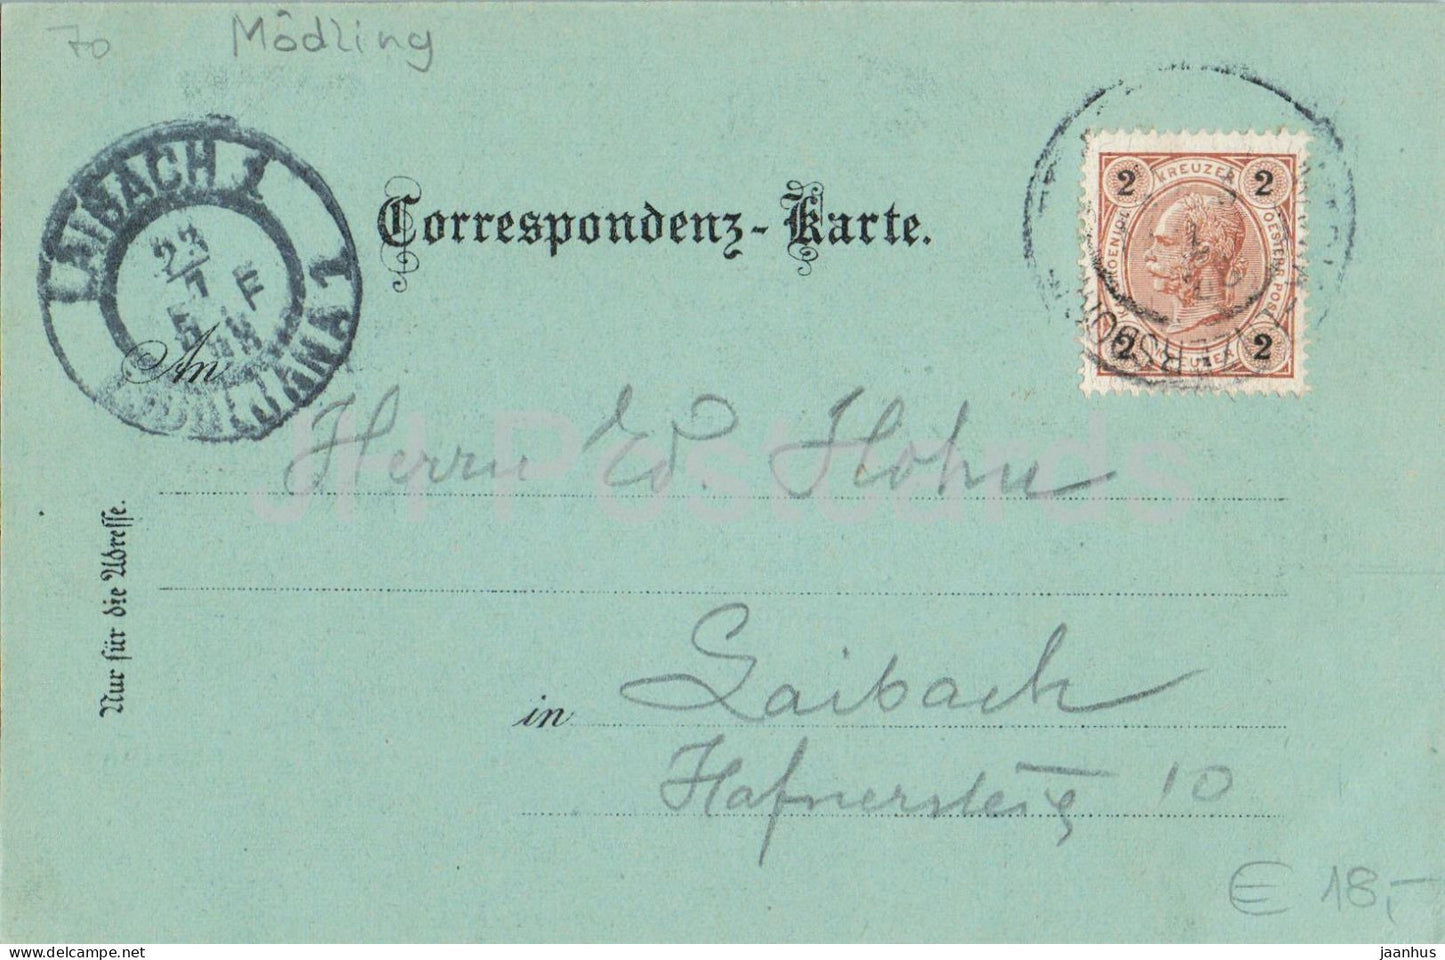 70 Mödling
LAIBACH 1
23
LJUBLJANA 1
Correspondenz-Karte.
2 KREUZER 2
2 2
An
Herrn Ed. Hohn
Nur für die Adresse.
in Laibach
Hafnersteig 10
€ 18,-
JH Postcards
jaanhus